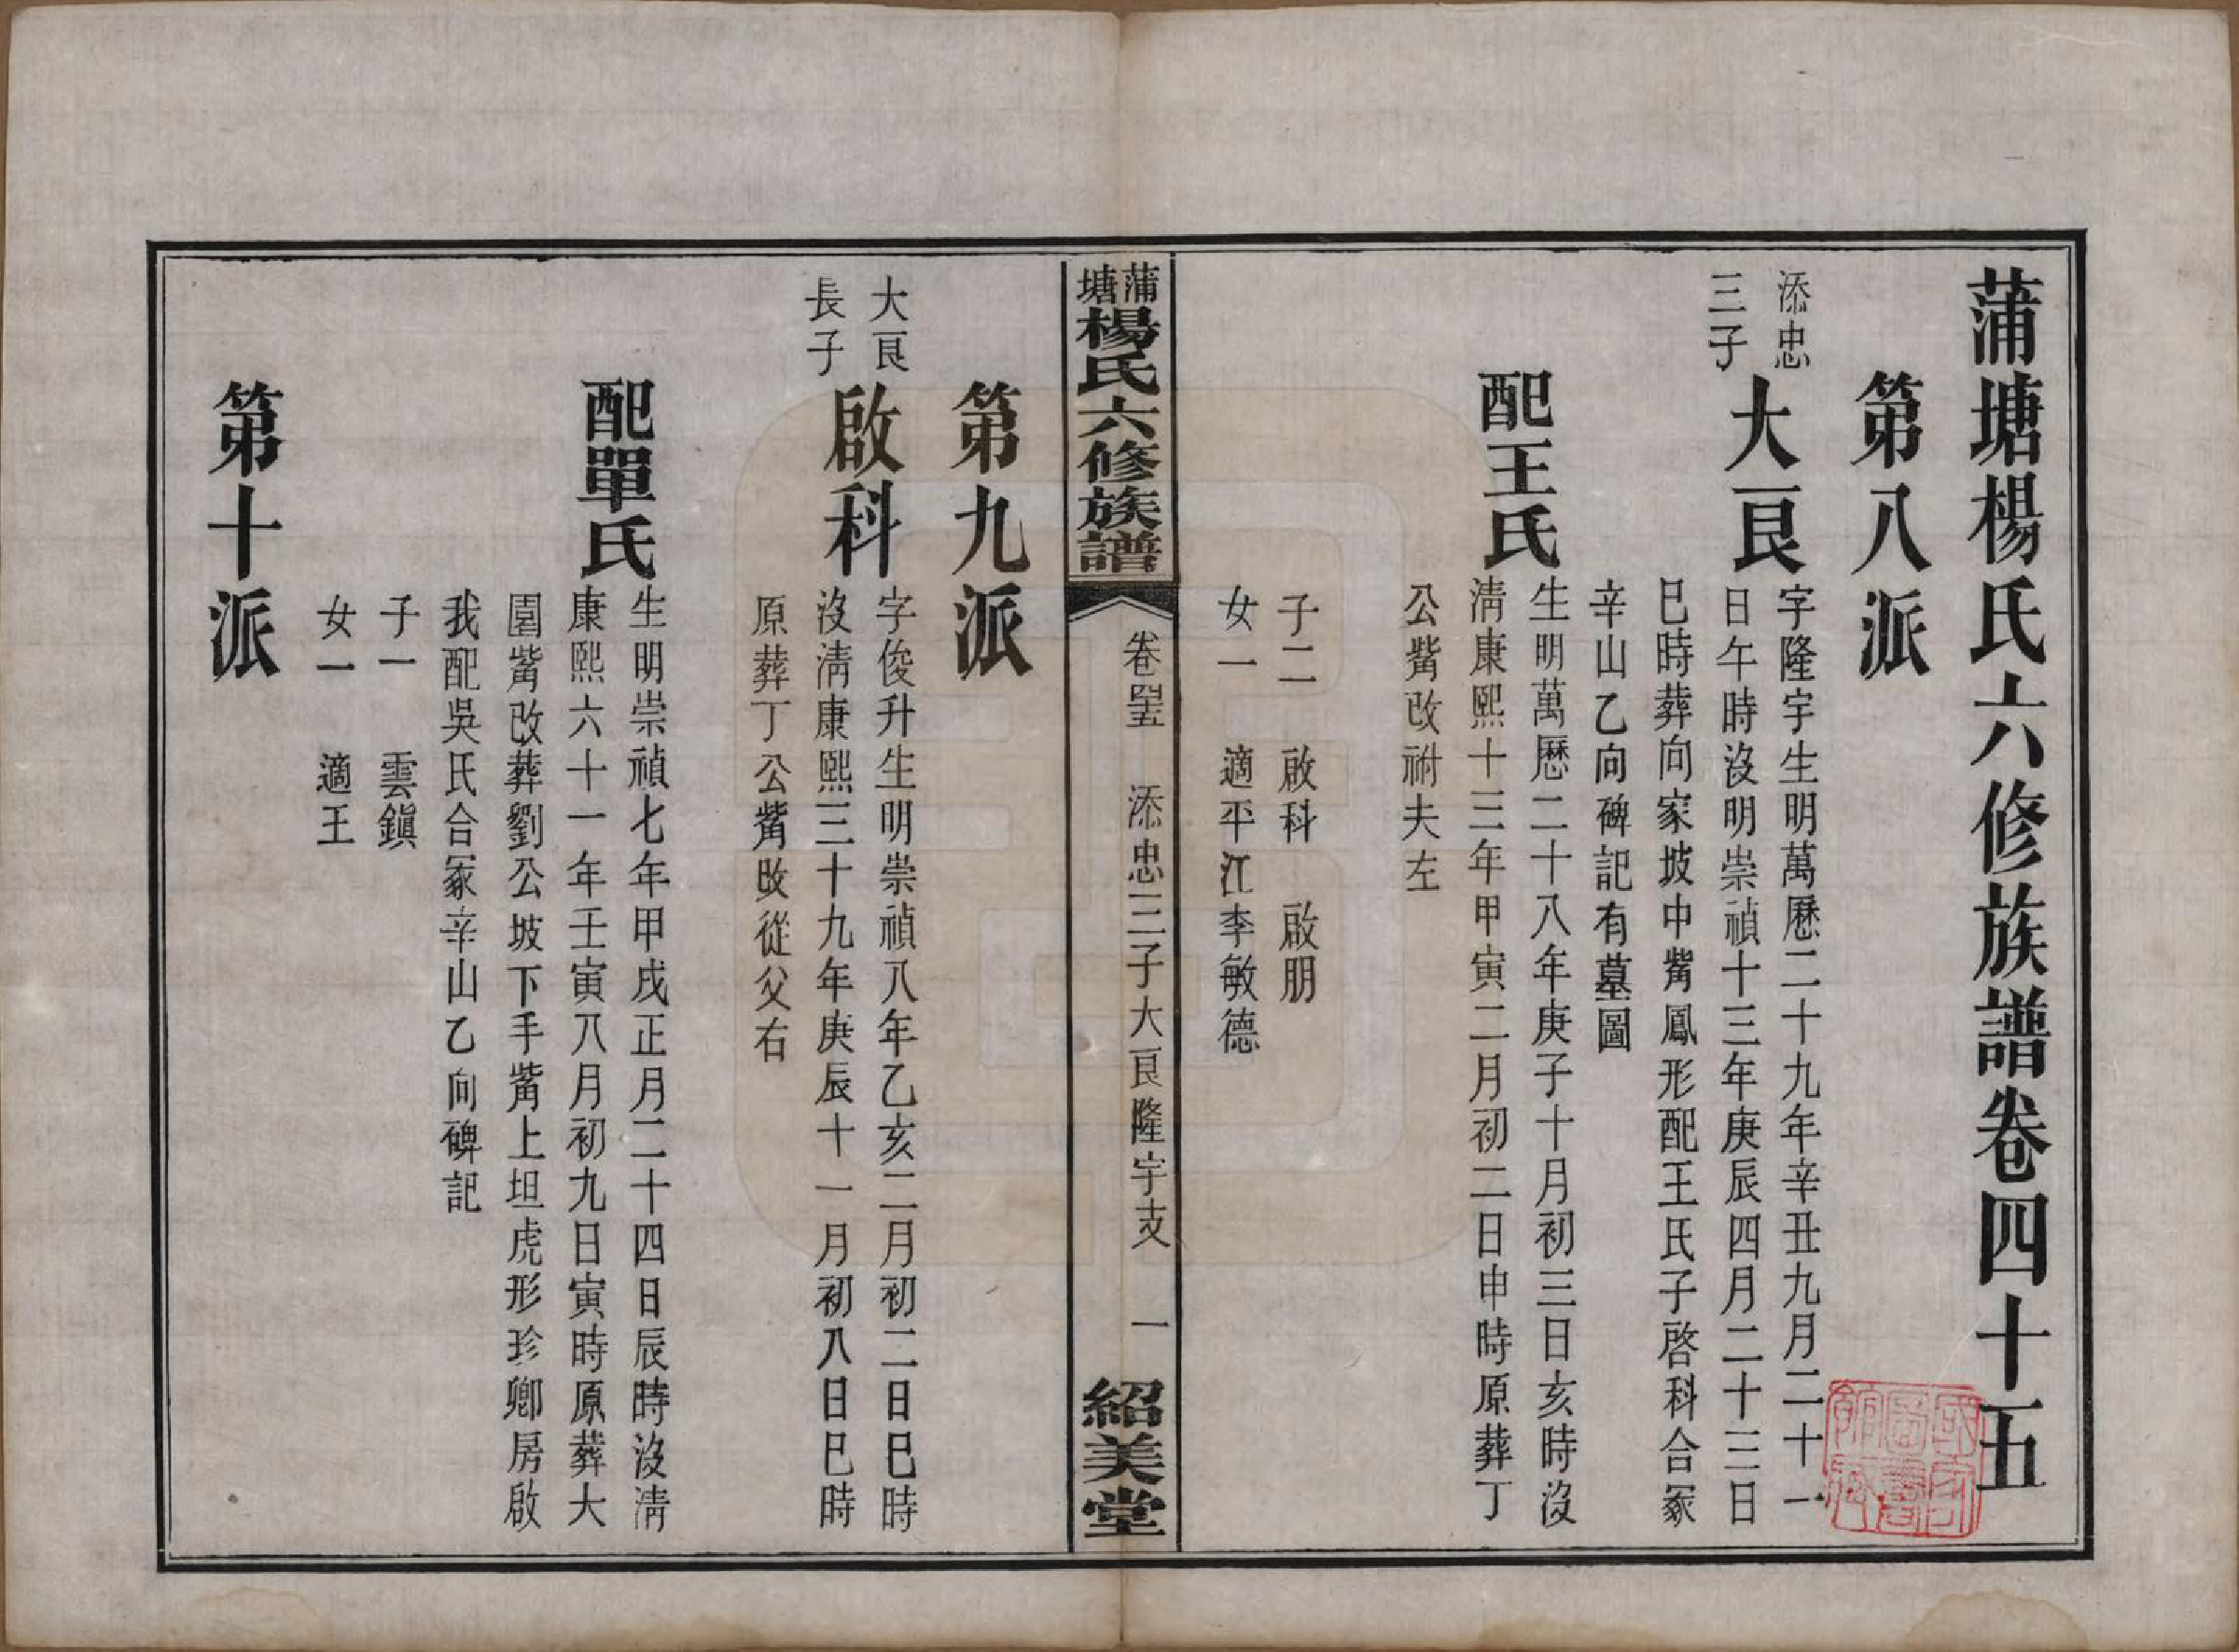 蒲塘楊氏六修族譜卷四十五
第八派
添忠
三子
大良
字隆宇生明萬曆二十九年辛丑九月二十一
日午時沒明崇禎十三年庚辰四月二十三日
巳時葬向家坡中觜鳳形配王氏子啓科合冢
辛山乙向碑記有墓圖
配王氏
生明萬曆二十八年庚子十月初三日亥時沒
清康熙十三年甲寅二月初二日申時原葬丁
公觜改祔夫左
子二　啟科　啟朋
女一　適平江李敏德
蒲塘楊氏六修族譜
卷四五　添忠三子大良隆宇支　一
紹美堂
第九派
大良
長子
啟科
字俊升生明崇禎八年乙亥二月初二日巳時
沒清康熙三十九年庚辰十一月初八日巳時
原葬丁公觜改從父右
配單氏
生明崇禎七年甲戌正月二十四日辰時沒清
康熙六十一年壬寅八月初九日寅時原葬大
圍觜改葬劉公坡下手觜上坦虎形珍卿房啟
我配吳氏合冢辛山乙向碑記
子一　雲鎮
女一　適王
第十派